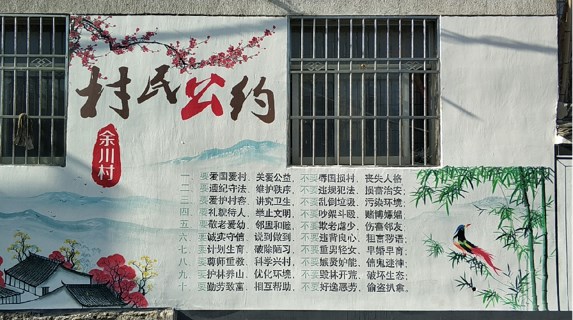 村民公约
余川村
一 要爱国爱村、关爱公益, 不要辱国损村、丧失人格
二 要遵纪守法、维护秩序, 不要违规犯法、损害治安
三 要爱护村容、讲究卫生, 不要乱倒垃圾、污染环境
四 要礼貌待人、举止文明, 不要吵架斗殴、赌博嫖娼
五 要敬老爱幼、邻里和睦, 不要欺老虐少、伤害邻友
六 要诚实守信、说到做到, 不要违背良心、粗言秽语
七 要计划生育、破除陋习, 不要重男轻女、早婚早育
八 要尊师重教、科学兴村, 不要嫉贤妒能、信鬼迷神
九 要护林养山、优化环境, 不要毁林开荒、破坏生态
十 要勤劳致富、相互帮助, 不要好逸恶劳、偷盗扒拿